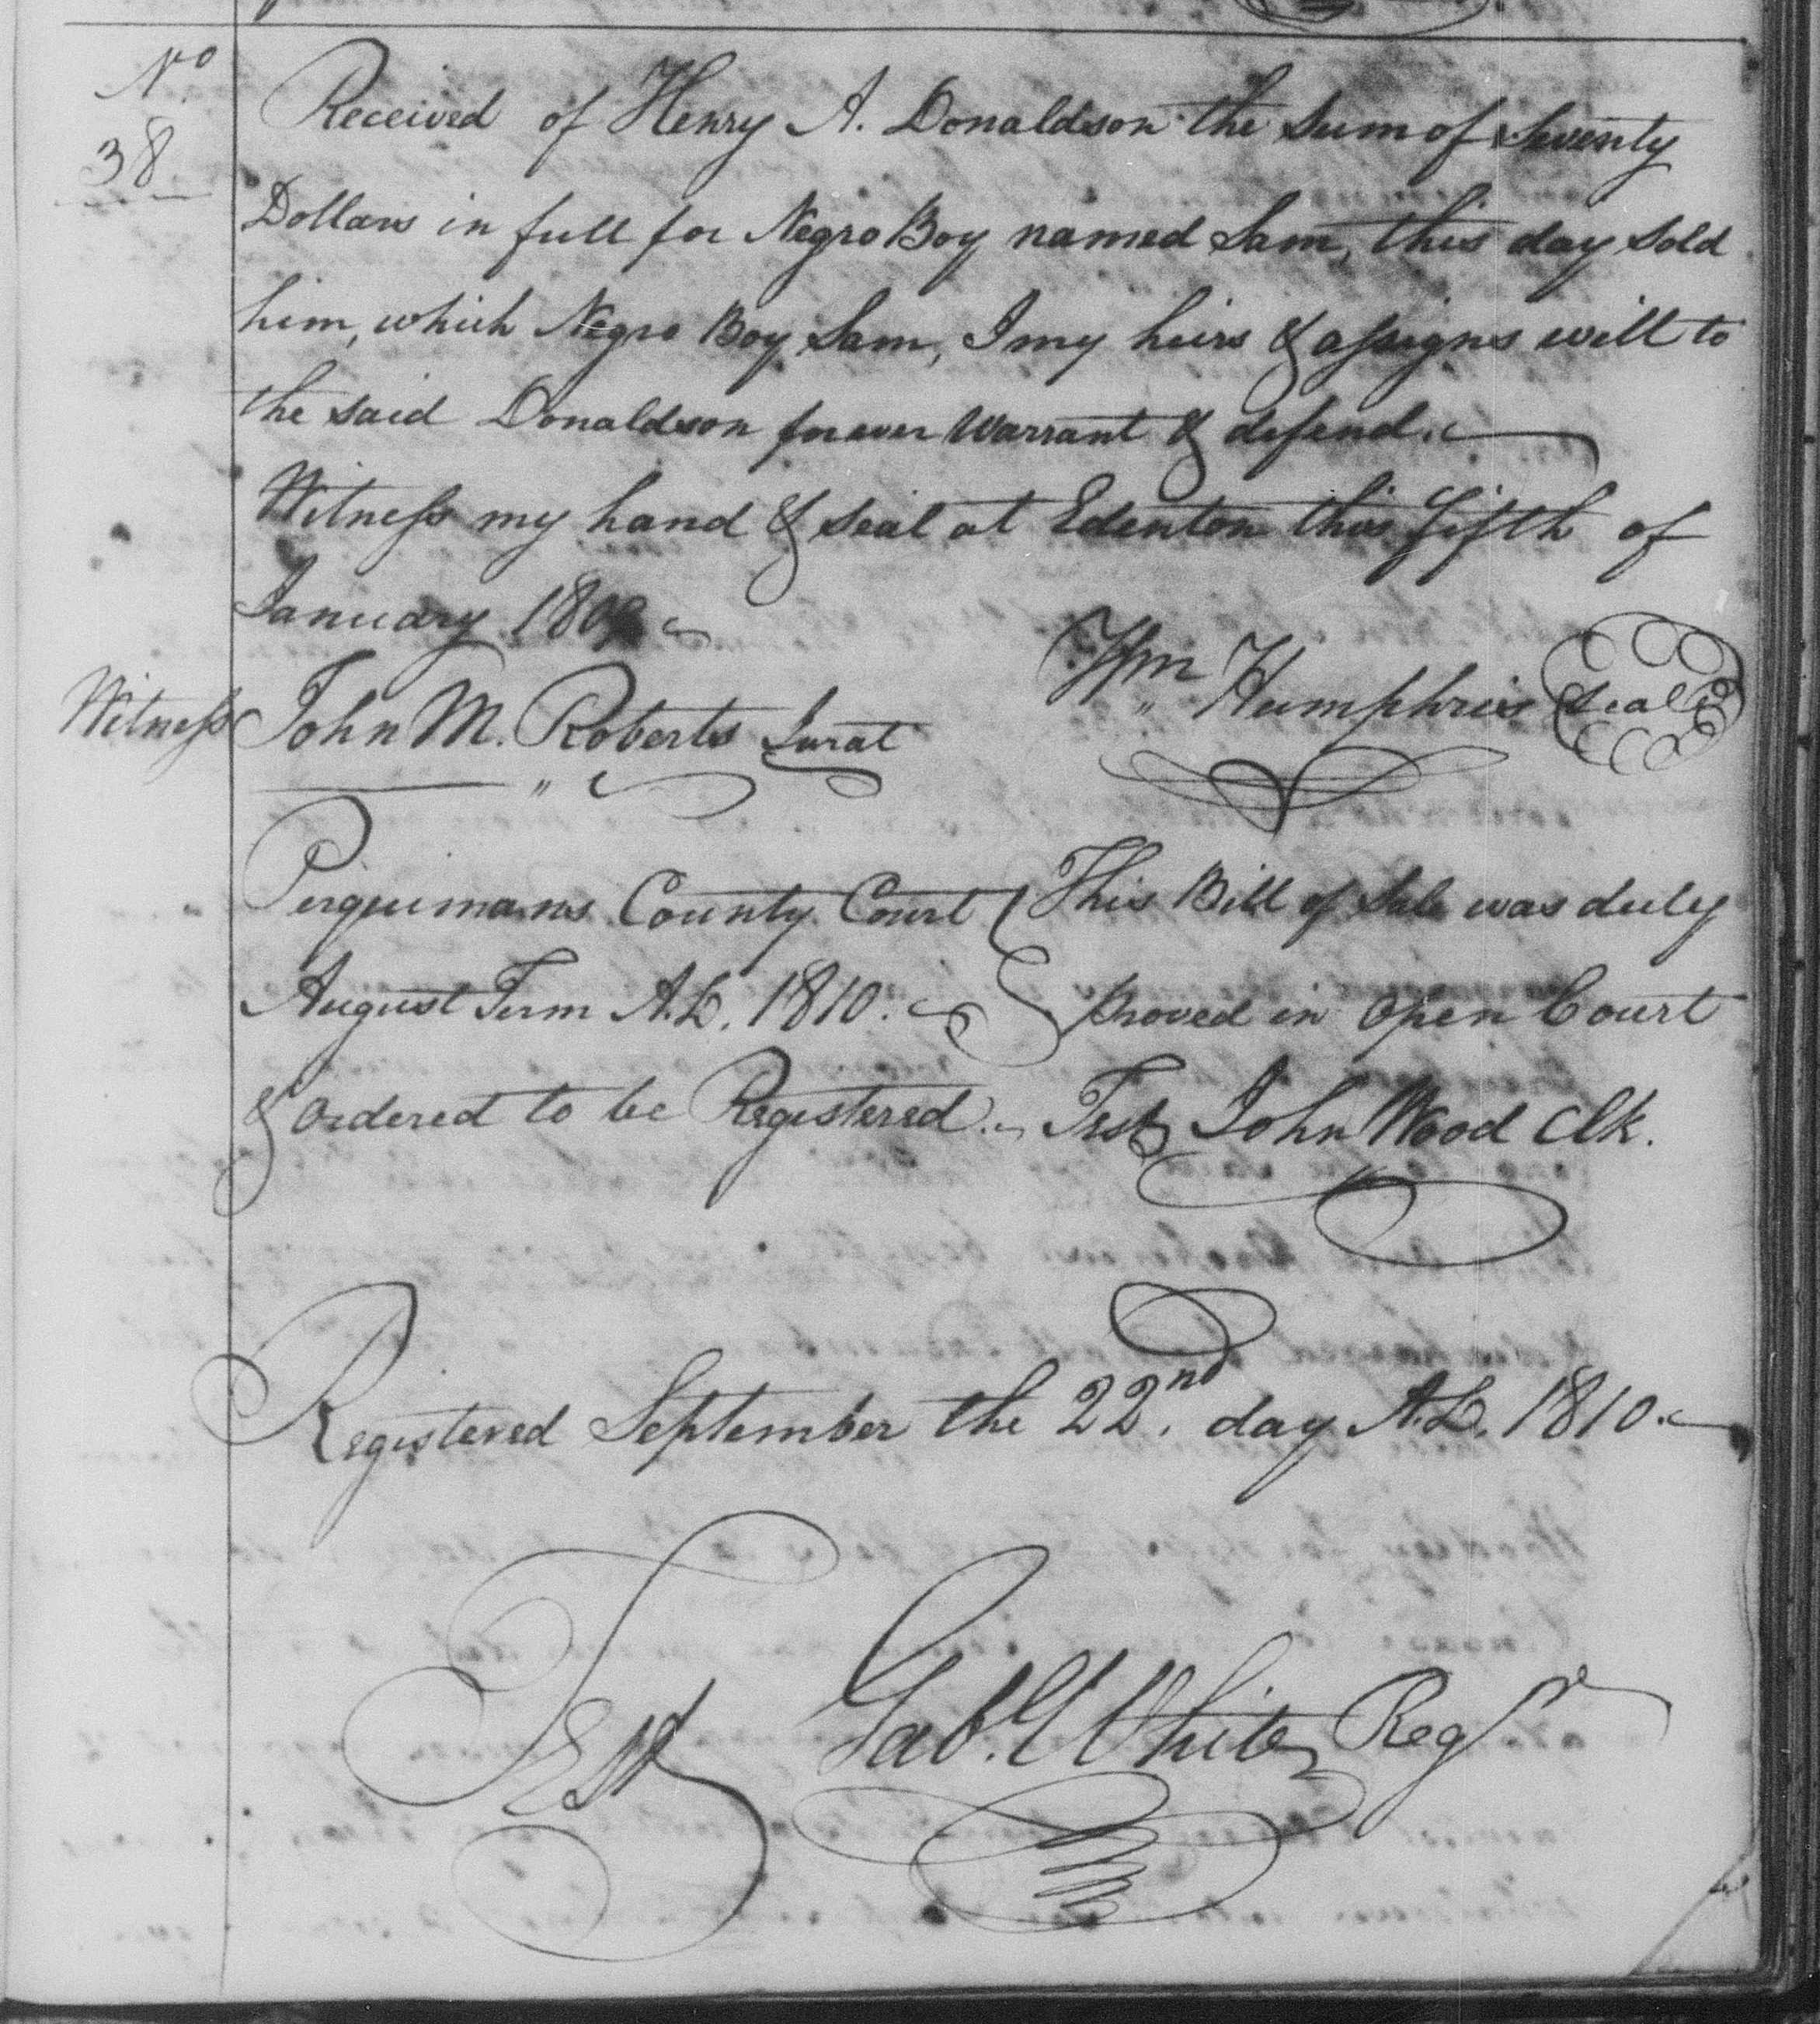 No
38
Received of Henry A. Donaldson the Sum of Seventy
Dollars in full for Negro Boy named Sam, this day sold
him, which Negro Boy Sam, I my heirs & assigns will to
the said Donaldson forever Warrant & defend.
Witness my hand & seal at Edenton this fifth of
January
Wm Humphries Seal
Witness John M. Roberts Jurat
Perquimans County Court } This Bill of Sale was duly
August Term A.D. 1810. } proved in open Court
& ordered to be Registered. Test John Wood Clk.
Registered September the 22nd. day A.D. 1810.
Test Gab. White Regr